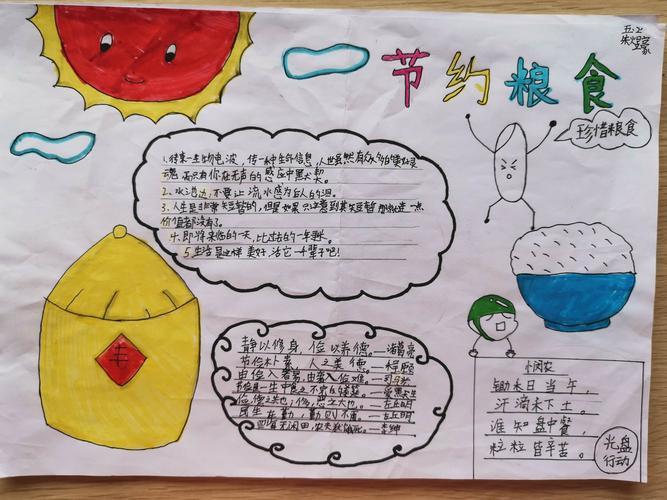 节约粮食
五.2
珍惜粮食
1.将来一生物电波，传一种生外信息，人世虽然有众多的美好灵
魂，而只有你在无声的感应中黑大契。
2.水道边，不要让流水成为后人的泪。
3.人生是非常短暂的，但是如果只注意到其短暂 那就连一点
价值都没有了。
4.即将来临的一天，比过去的一年
5.生活是这样美好，活它一千辈子吧！
静以修身，俭以养德。——诸葛亮
节俭朴素，人之美德。
由俭入奢易，由奢入俭难。
俭，德之共也；侈，恶之大也。——左丘明
民生在勤，勤则不匮。——左丘明
四海无闲田，农夫犹饿死。——李绅
丰
悯农
锄禾日当午，
汗滴禾下土。
谁知盘中餐，
粒粒皆辛苦。
光盘
行动